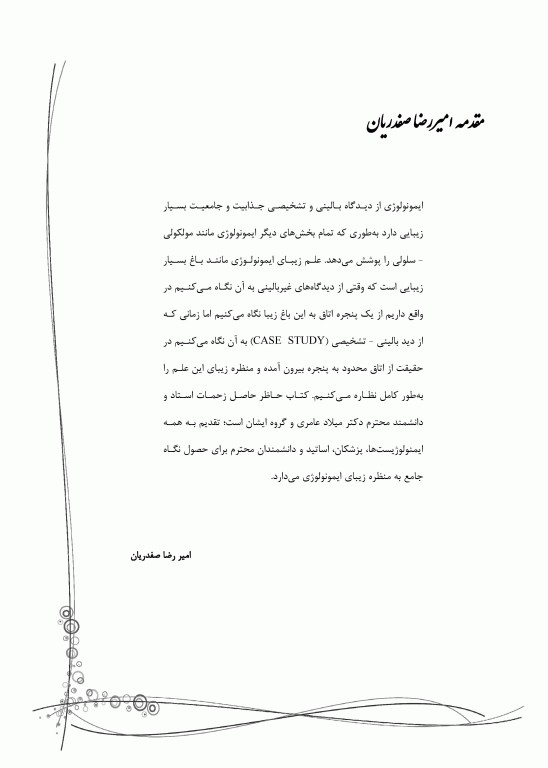 مقدمه امیررضا صفدریان
ایمونولوژی از دیدگاه بالینی و تشخیصی جذابیت و جامعیت بسیار
زیبایی دارد به‌طوری که تمام بخش‌های دیگر ایمونولوژی مانند مولکولی
- سلولی را پوشش می‌دهد. علم زیبای ایمونولوژی مانند باغ بسیار
زیبایی است که وقتی از دیدگاه‌های غیربالینی به آن نگاه می‌کنیم در
واقع داریم از یک پنجره اتاق به این باغ زیبا نگاه می‌کنیم اما زمانی که
از دید بالینی - تشخیصی (CASE STUDY) به آن نگاه می‌کنیم در
حقیقت از اتاق محدود به پنجره بیرون آمده و منظره زیبای این علم را
به‌طور کامل نظاره می‌کنیم. کتاب حاظر حاصل زحمات استاد و
دانشمند محترم دکتر میلاد عامری و گروه ایشان است؛ تقدیم به همه
ایمنولوژیست‌ها، پزشکان، اساتید و دانشمندان محترم برای حصول نگاه
جامع به منظره زیبای ایمونولوژی می‌دارد.
امیر رضا صفدریان